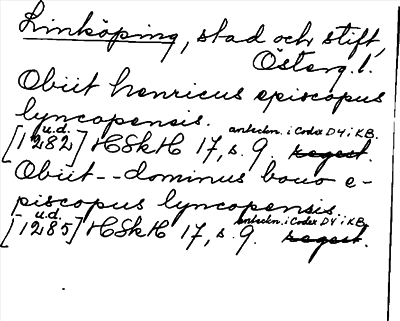 Linköping, stad och stift,
Österg.l.
Obiit henricus episcopus
lyncopensis.
u.d. anteckn. i Codex D4 i KB.
[1282] HSkH 17, s. 9. regest.
Obiit--dominus bouo e-
piscopus lyncopensis.
u.d. anteckn. i Codex D4 i KB.
[1285] HSkH 17, s. 9. regest.